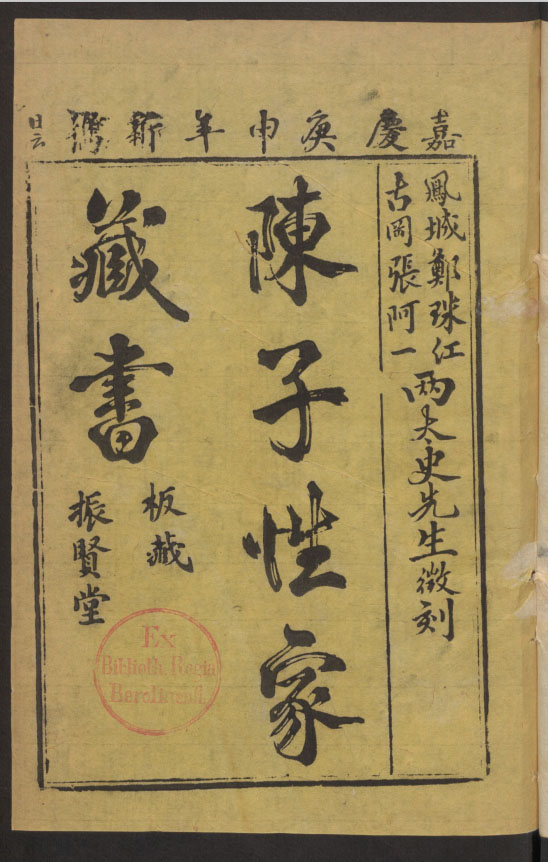 嘉慶庚申年新鐫
鳳城鄭珠江
古岡張阿一
兩太史先生徵刻
陳子性家
藏書
板藏
振賢堂
Ex
Biblioth. Regia
Berolinensi.